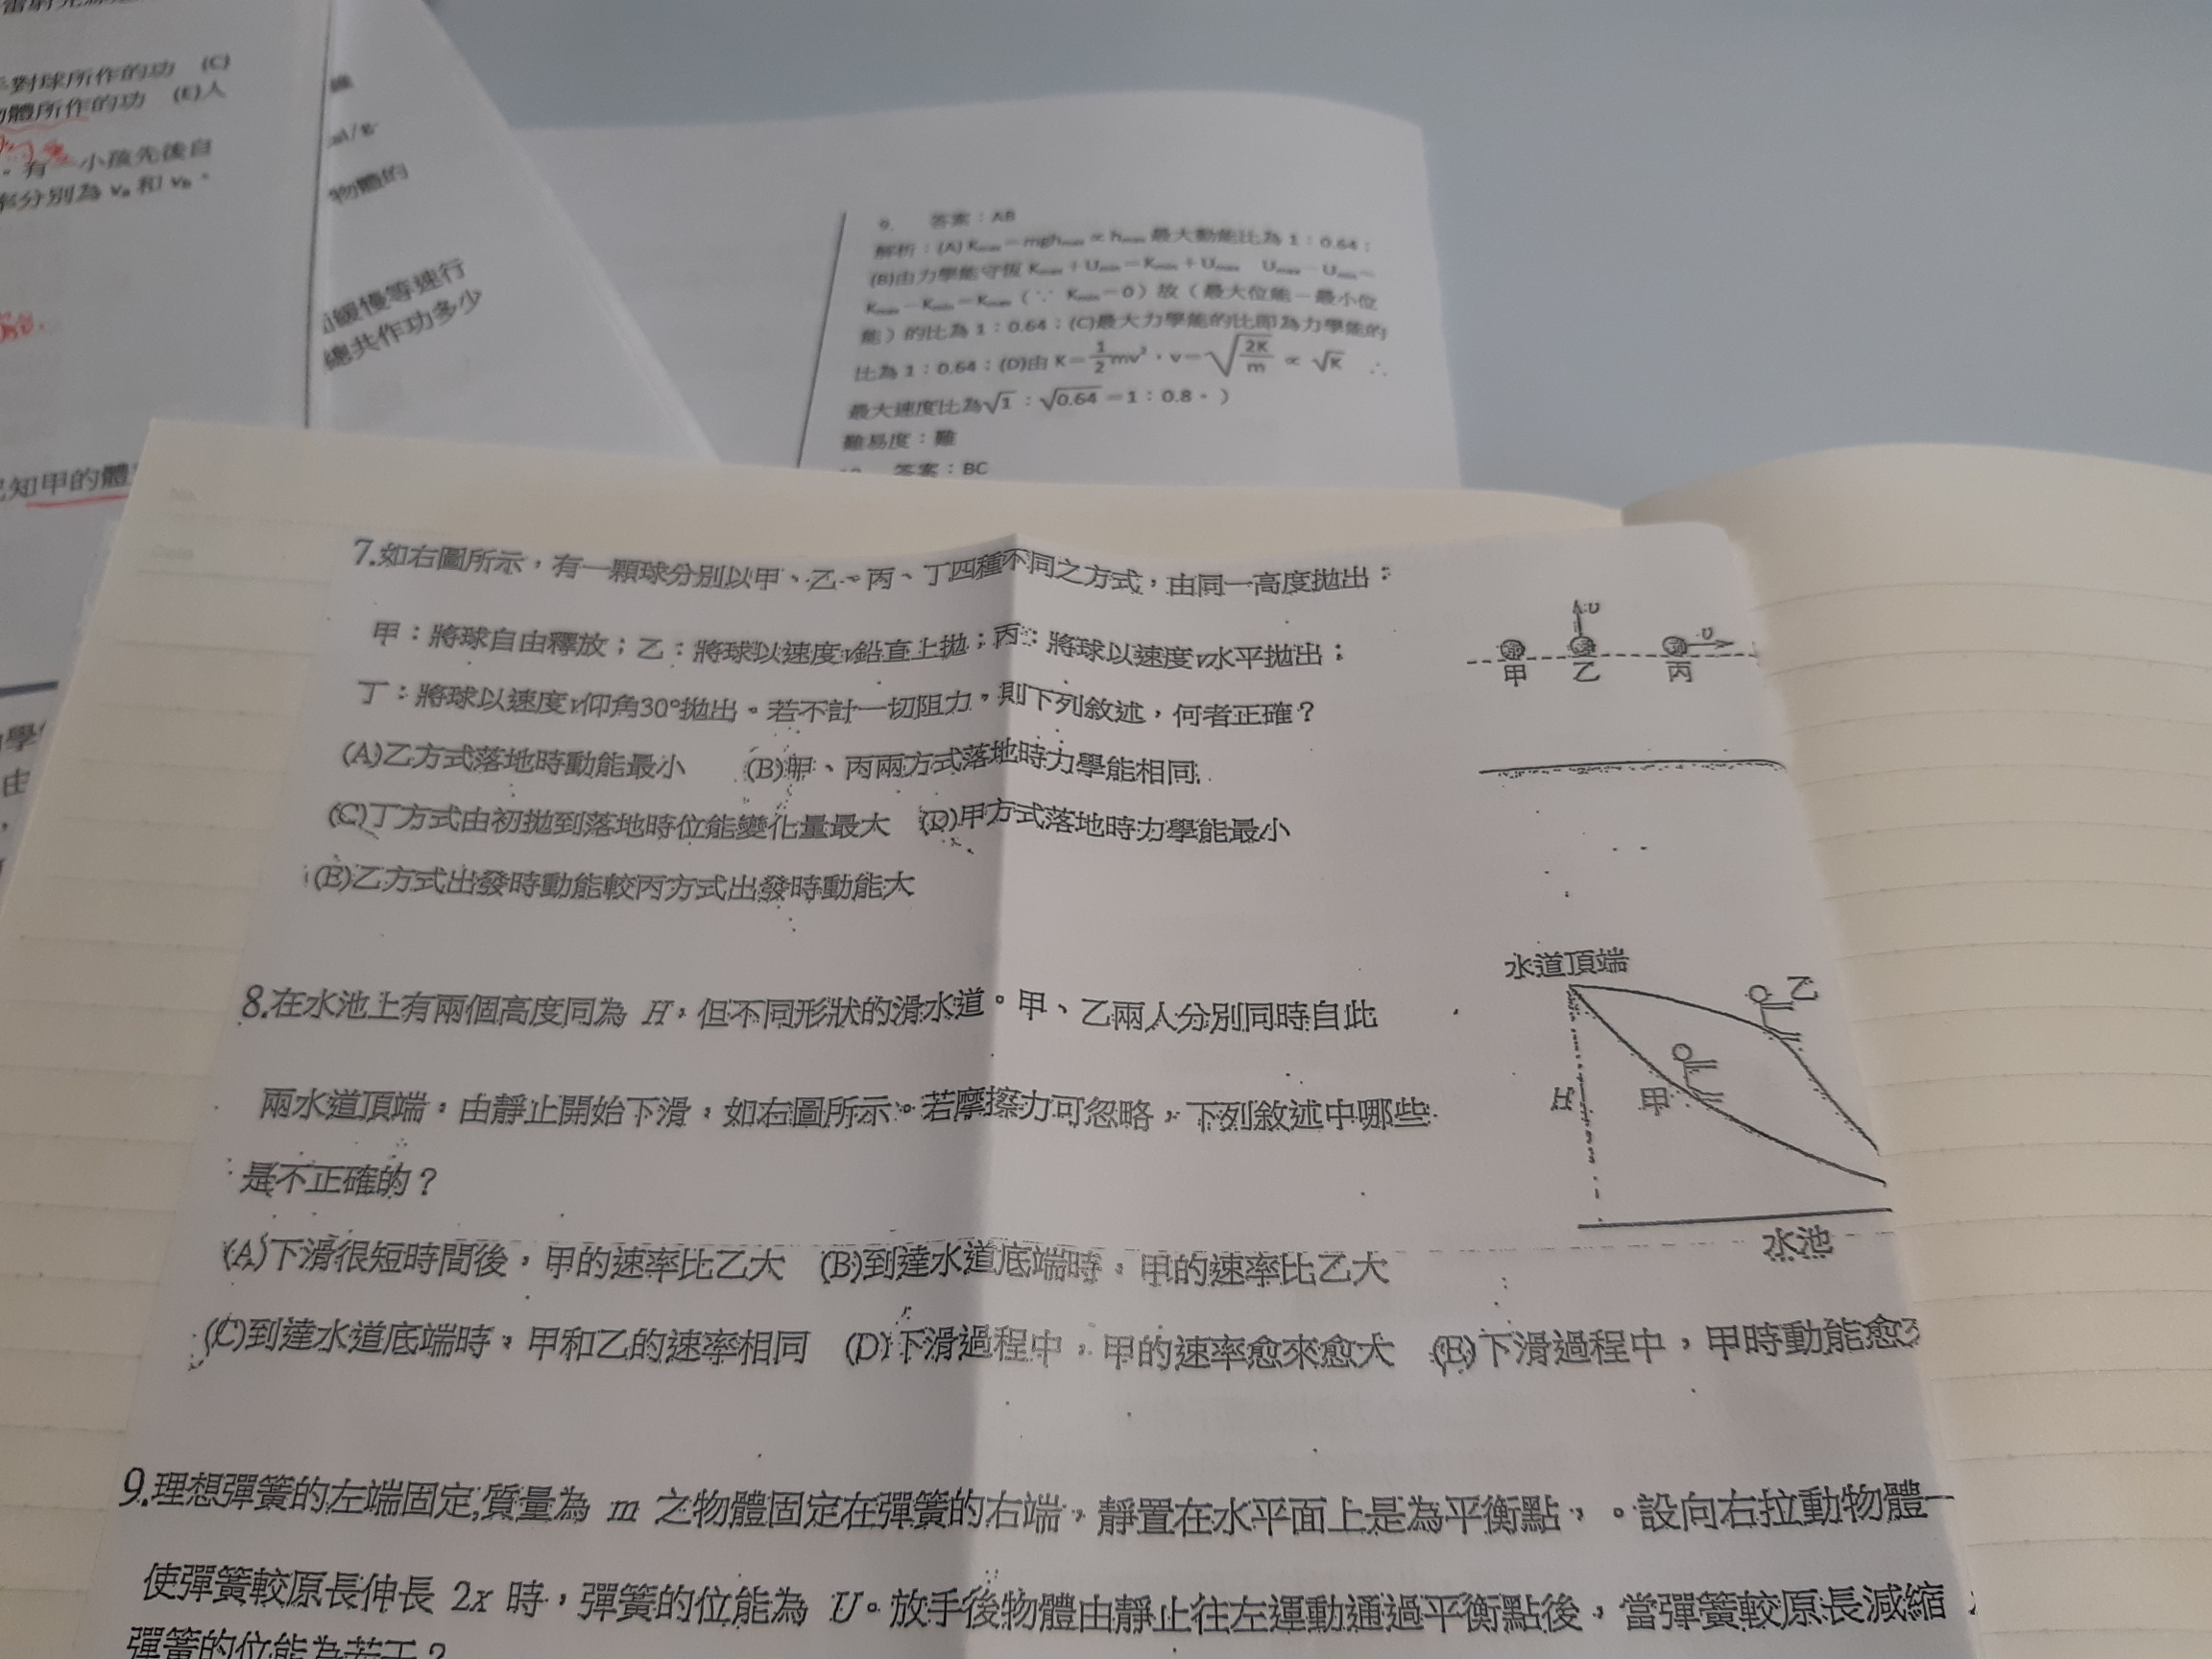 對球所作的功 (C)
物體所作的功 (E)人
。有一小孩先後自
率分別為 vₐ 和 vB。
已知甲的體
物體的
緩慢等速行
總共作功多少
9. 答案：AB
解析：(A) Kmax＝mghmax ∝ hmax 最大動能比為 1：0.64；
(B)由力學能守恆 Kmax＋Umin＝Kmin＋Umax Umax－Umin＝
Kmax－Kmin＝Kmax（∵ Kmin＝0）故（最大位能－最小位
能）的比為 1：0.64；(C)最大力學能的比即為力學能的
比為 1：0.64；(D)由 K＝1/2mv²，v＝√(2K/m) ∝ √K ∴
最大速度比為√1：√0.64＝1：0.8。）
難易度：難
答案：BC
7.如右圖所示，有一顆球分別以甲、乙、丙、丁四種不同之方式，由同一高度拋出：
甲：將球自由釋放；乙：將球以速度v鉛直上拋；丙：將球以速度v水平拋出；
丁：將球以速度v仰角30°拋出。若不計一切阻力，則下列敘述，何者正確？
(A)乙方式落地時動能最小 (B)甲、丙兩方式落地時力學能相同
(C)丁方式由初拋到落地時位能變化量最大 (D)甲方式落地時力學能最小
(E)乙方式出發時動能較丙方式出發時動能大
υ
υ
甲 乙 丙
8.在水池上有兩個高度同為 H，但不同形狀的滑水道。甲、乙兩人分別同時自此
兩水道頂端，由靜止開始下滑，如右圖所示。若摩擦力可忽略，下列敘述中哪些
是不正確的？
(A)下滑很短時間後，甲的速率比乙大 (B)到達水道底端時，甲的速率比乙大
(C)到達水道底端時，甲和乙的速率相同 (D)下滑過程中，甲的速率愈來愈大 (E)下滑過程中，甲時動能愈
水道頂端
乙
H 甲
水池
9.理想彈簧的左端固定,質量為 m 之物體固定在彈簧的右端，靜置在水平面上是為平衡點，。設向右拉動物體一
使彈簧較原長伸長 2x 時，彈簧的位能為 U。放手後物體由靜止往左運動通過平衡點後，當彈簧較原長減縮
彈簧的位能為若干？